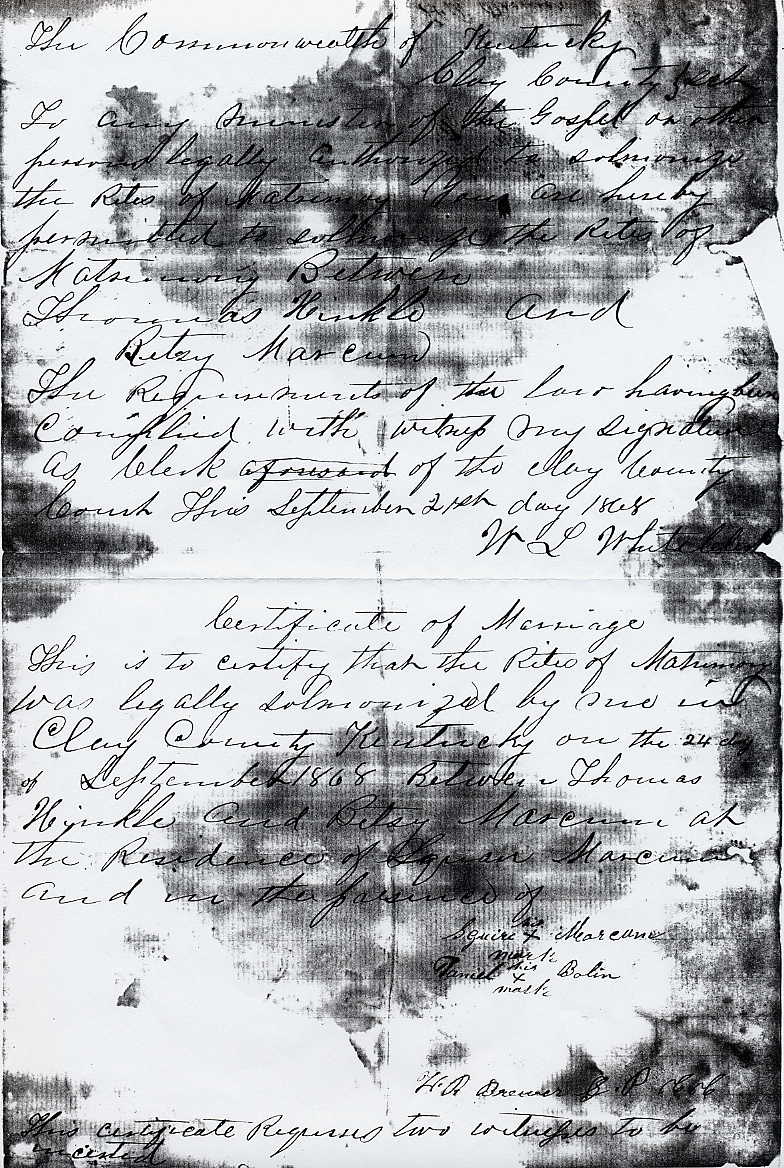 The Commonwealth of Kentucky
Clay County Sct
To any minister of the Gospel or other
person legally Authorized to solmonize
the Rites of Matrimony You are hereby
permitted to solmonize the Rites of
Matrimony Between
Thomas Hinkle and
Betsy Marcum
The Requirements of the law having been
Complied with witness my signature
as Clerk aforesaid of the Clay County
Court This September 21st day 1868
W L White Clerk
Certificate of Marriage
This is to certify that the Rites of Matrimony
was legally solmonized by me in
Clay County Kentucky on the 24 day
of September 1868 Between Thomas
Hinkle and Betsy Marcum at
the Residence of Squire Marcum
and in the presence of
his
Squire X Marcum
mark
his
Daniel X Bolin
mark
W. R. Brewer
This certificate Requires two witnesses to be
incerted